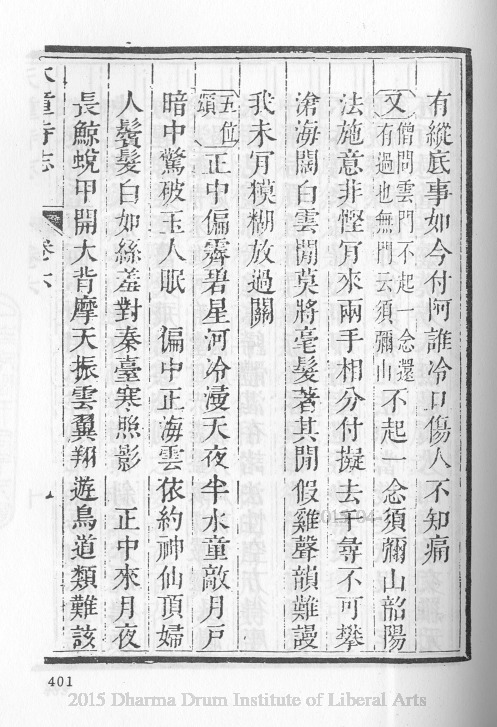 有縱底事如今付阿誰冷口傷人不知痛
又僧問雲門不起一念還
有過也無門云須彌山不起一念須彌山韶陽
法施意非慳肎來兩手相分付擬去千尋不可攀
滄海闊白雲閒莫將毫髮著其閒假雞聲韻難謾
我未肎糢糊放過關
五位頌正中偏霽碧星河冷漫天夜半水童敲月戶
暗中驚破玉人眠　偏中正海雲依約神仙頂婦
人鬢髮白如絲羞對秦臺寒照影　正中來月夜
長鯨蛻甲開大背摩天振雲翼翔遊鳥道類難該
天童寺志　卷六
401
2015 Dharma Drum Institute of Liberal Arts